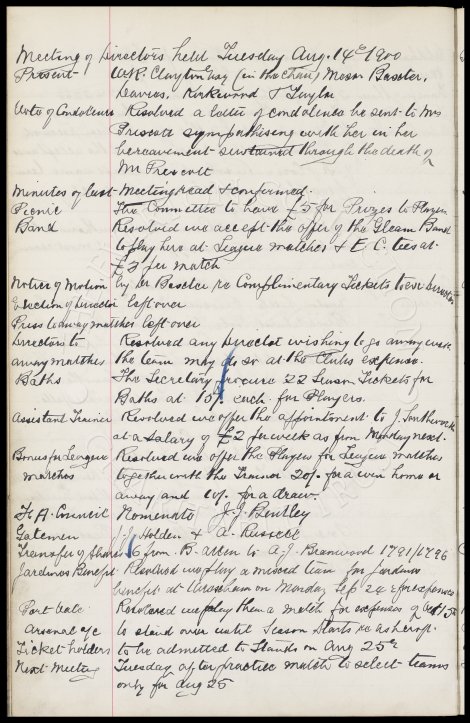 Meeting of Directors held Tuesday Aug. 14th 1900
Present - W.R. Clayton Esq (in the Chair) Messrs Baxter,
Davies, Kirkwood & Taylor
Vote of Condolence Resolved a letter of condolence be sent to Mrs
Prescott sympathising with her in her
bereavement sustained through the death of
Mr Prescott
Minutes of last Meeting read & confirmed.
Picnic The Committee to have £5 for Prizes to Players
Band Resolved we accept the offer of the Gleam Band
to play here at League matches & E.C. ties at
£3 per match
Notice of Motion by Mr Baxter re Complimentary Tickets to Ex Directors
Election of Director left over
Press to away matches left over
Directors to Resolved any Director wishing to go away with
away matches the team may do so at the Clubs expense.
Baths The Secretary procure 22 Season Tickets for
Baths at 15/- each for Players.
Assistant Trainer Resolved we offer the appointment to J. Southworth
at a salary of £2 per week as from Monday next.
Bonus for League Resolved we offer the Players for League matches
matches together with the Trainer 20/- for a win home or
away and 10/- for a draw.
F.A. Council Nominate J.J. Bentley
Gatemen J. Holden & A. Russell
Transfer of Shares 6 from B. Allen to A.J. Branwood 1791/1796
Jardines Benefit Resolved we play a mixed team for Jardines
benefit at Wrexham on Monday Sep 24 & for expenses
Port Vale Resolved we play them a match for expenses of Oct 15th
Arsenal a/c to stand over until Season starts re Ashcroft.
Ticket holders to be admitted to Stands on Aug 25th
Next Meeting Tuesday after practice match to select teams
only for Aug 25